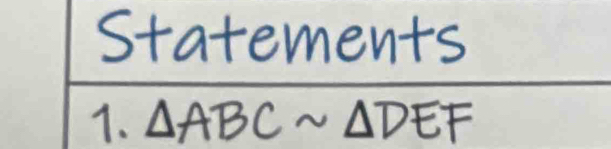 Statements
1. ΔABC ~ ΔDEF